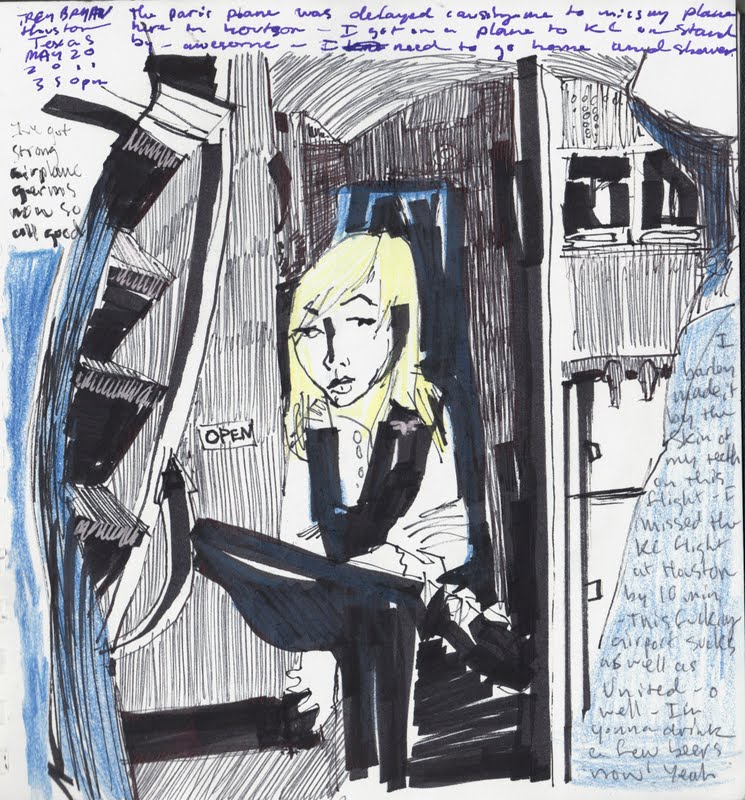 TREY BRYAN
Houston
Texas
MAY 20
2011
350pm
The paris plane was delayed causing me to miss my plane
here in houtson - I got on a plane to KC on stand
by - awesome - I need to go home and shower
I've got
strong
airplane
germs
now so
all good
OPEN
I
barley
made it
by the
skin of
my teeth
on this
flight - I
missed the
KC flight
at Houston
by 10 min
- This fucking
airport sucks
as well as
United - o
well - Im
gonna drink
a few beers
now! Yeah